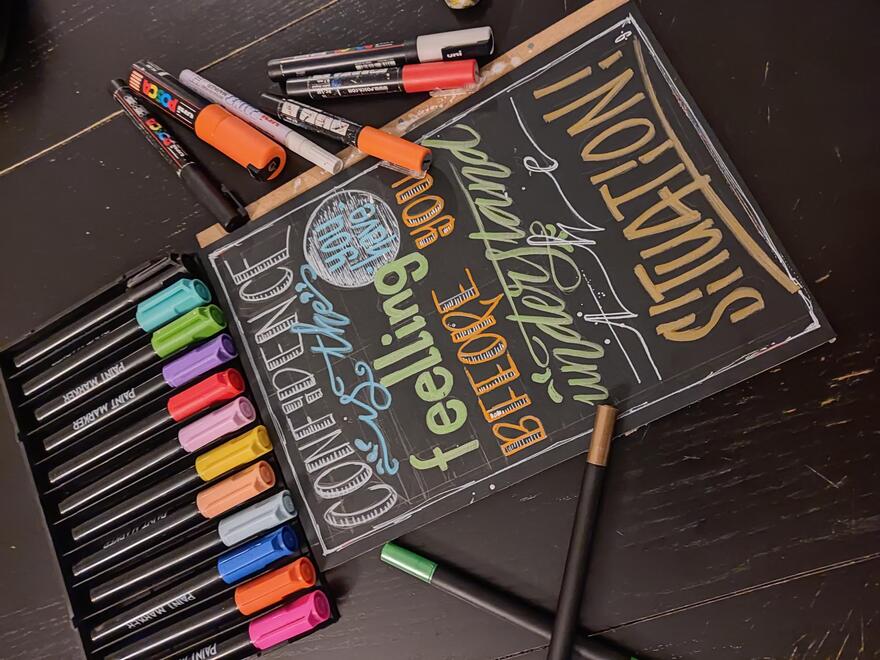 CONFIDENCE
is the
feeling
BEFORE YOU
understand
the
SITUATION!
POSCA
uni
PAINT MARKER
PAINT MARKER
PAINT MARKER
PAINT MARKER
PAINT MARKER